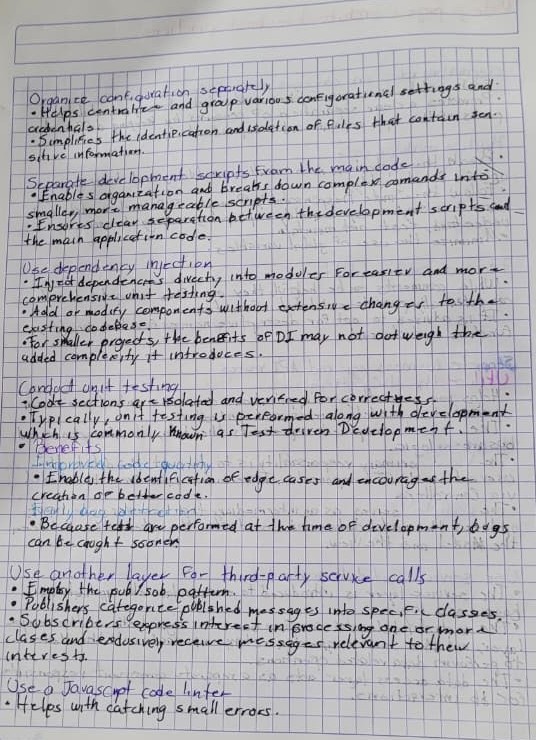 Organize configuration separately
• Helps centralize and group various configurational settings and
credentials.
• Simplifies the identification and isolation of files that contain sen-
sitive information.
Separate development scripts from the main code
• Enables organization and breaks down complex comands into
smaller, more manageable scripts.
• Ensores clear separation between the development scripts and
the main application code.
Use dependency injection
• Inject dependencies directly into modules for easier and more
comprehensive unit testing.
• Add or modify components without extensive changes to the
existing codebase.
• For smaller projects, the benefits of DI may not outweigh the
added complexity it introduces.
Conduct unit testing
• Code sections are isolated and verified for correctness.
• Typically, unit testing is performed along with development
which is commonly known as Test driven Development.
• Benefits
Improved code quality
• Enables the identification of edge cases and encourages the
creation of better code.
Early bug detection
• Because test are performed at the time of development, bugs
can be caught sooner.
Use another layer for third-party service calls
• Employ the pub/sob pattern.
• Publishers categorize published messages into specific classes.
• Subscribers express interest in processing one or more
clases and exclusively receive messages relevant to their
interests.
Use a Javascript code linter
• Helps with catching small errors.